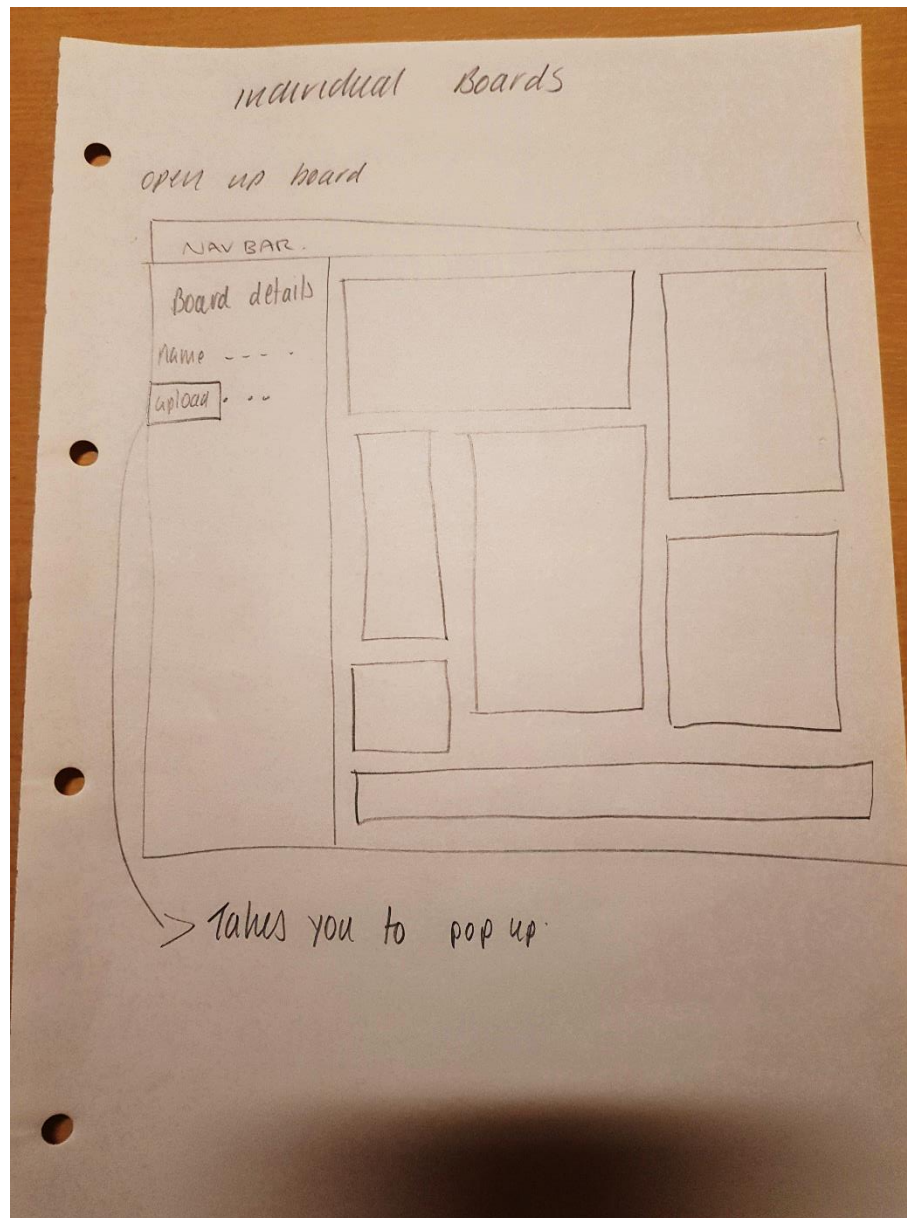 Individual Boards
open up board
NAV BAR.
Board details
Name ----
upload ...
Takes you to pop up.